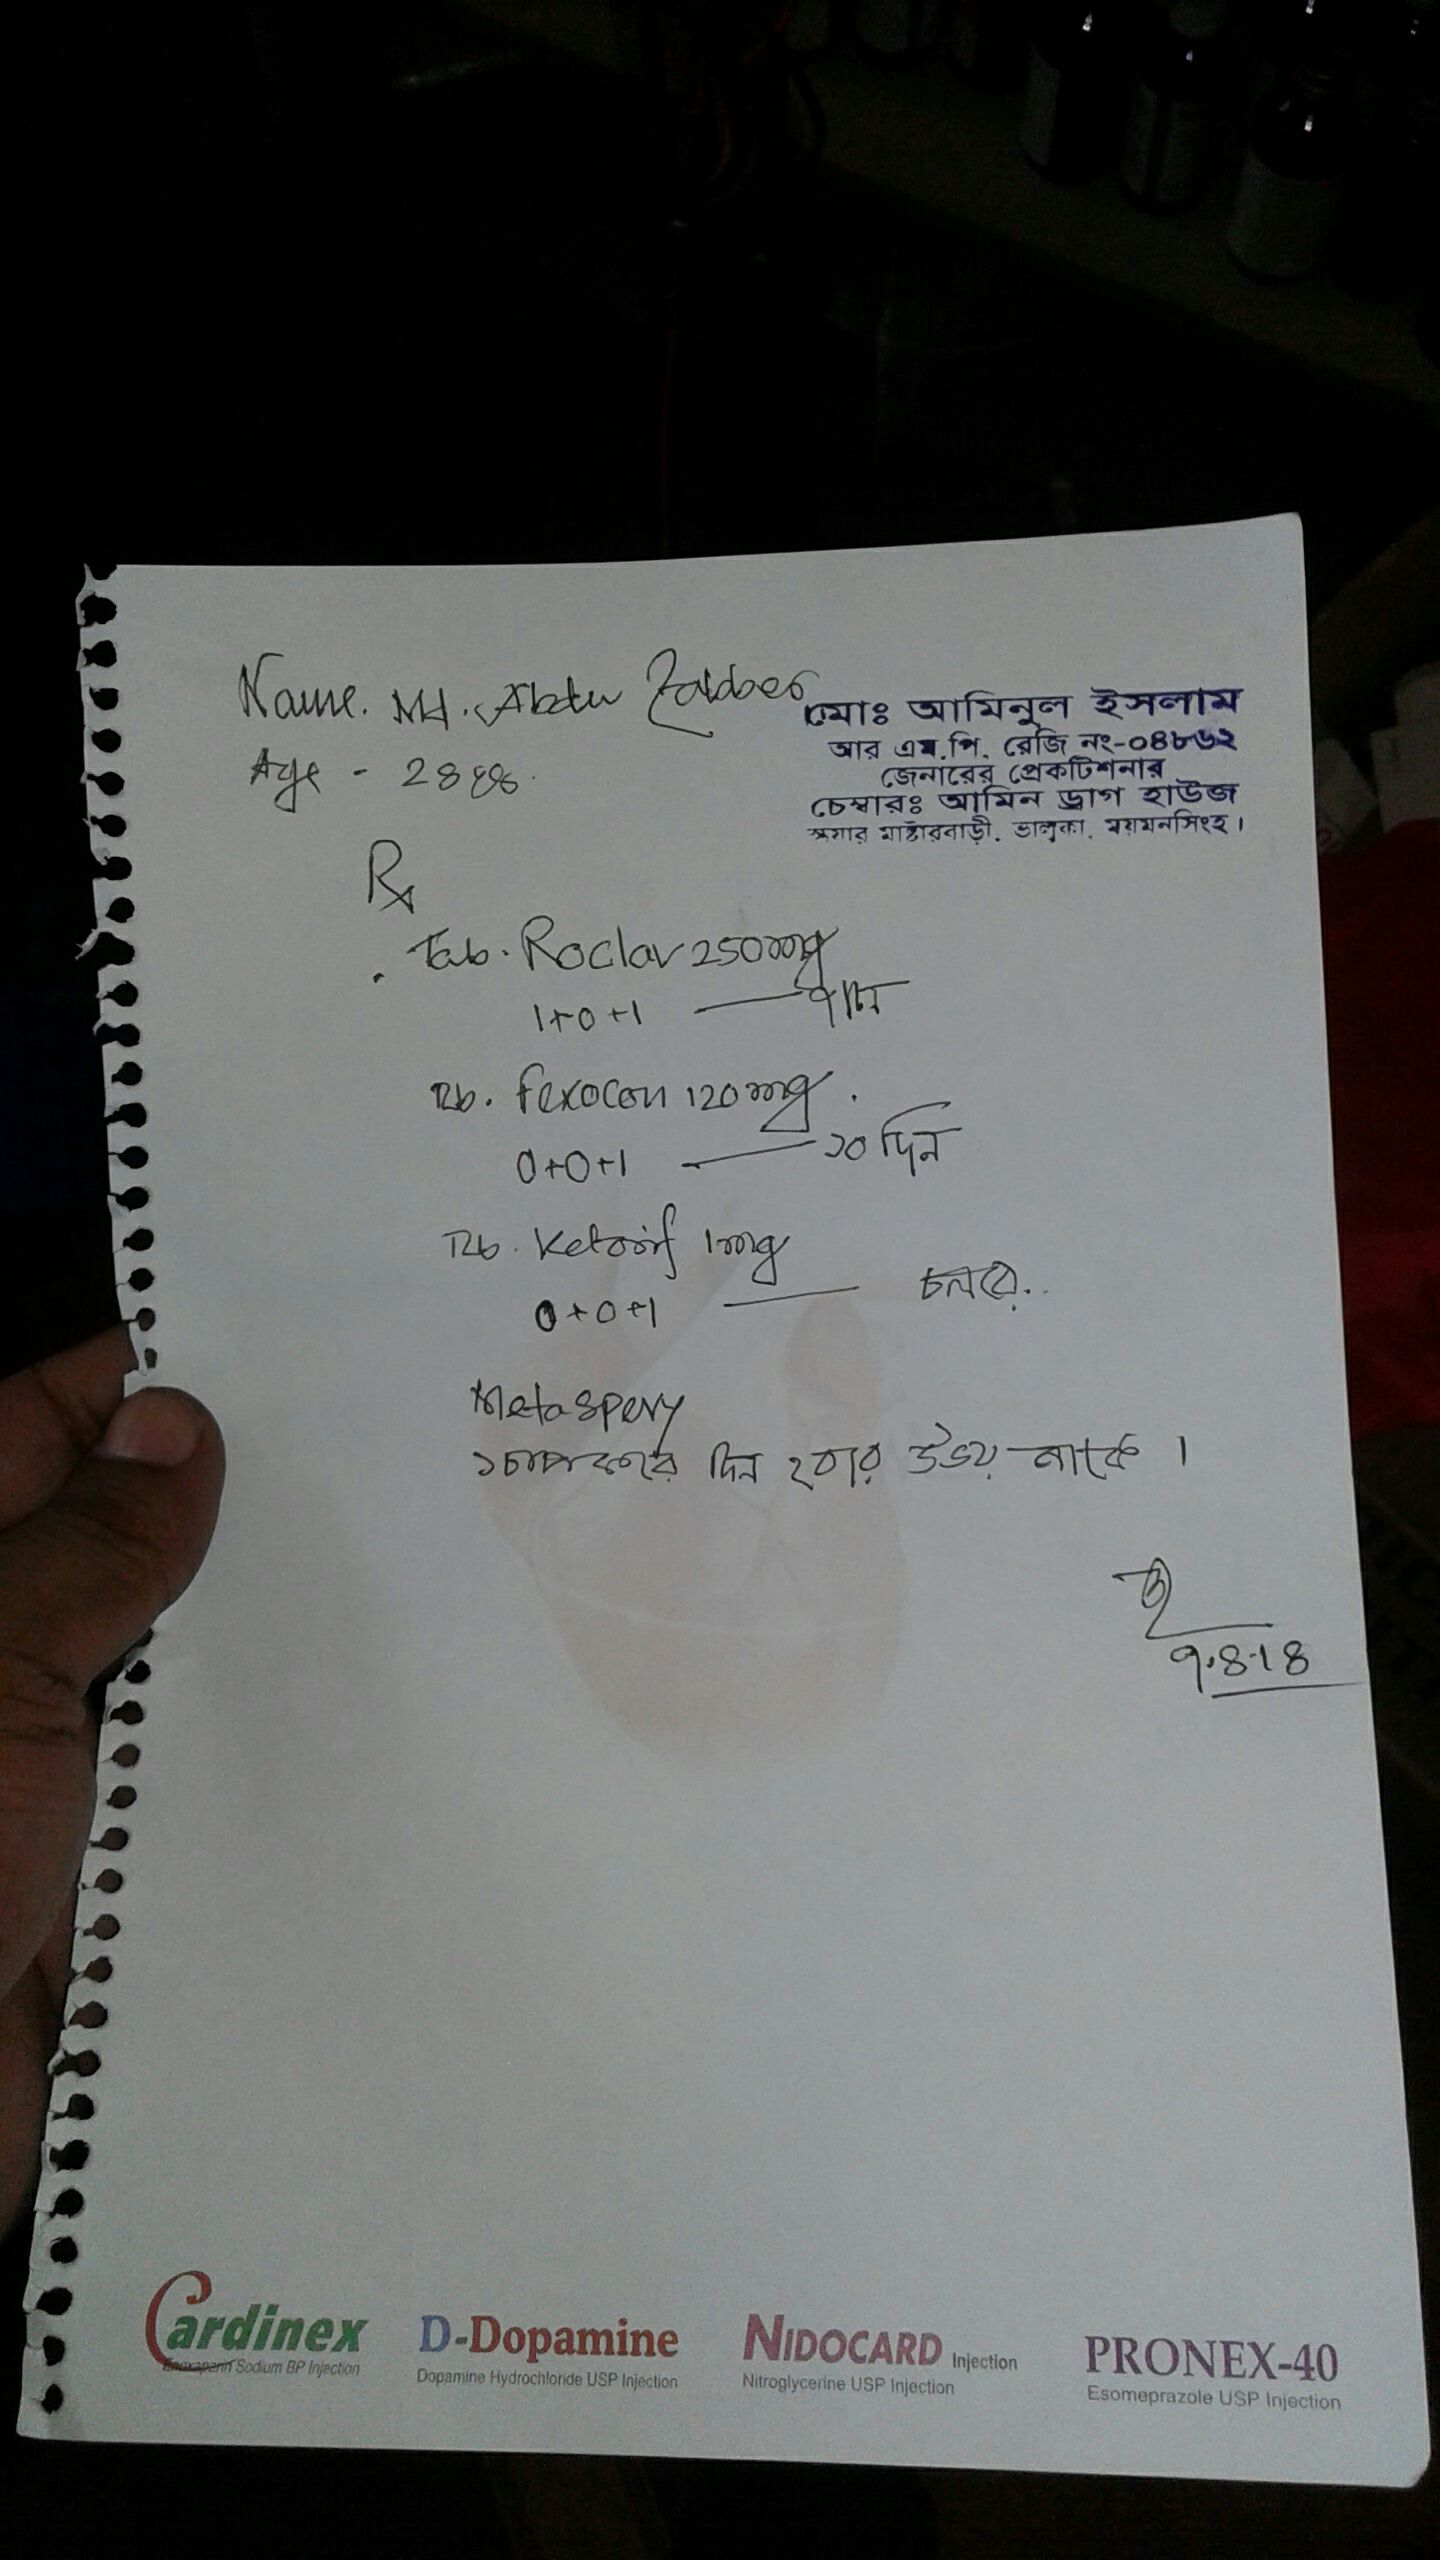 Name. Md. Abdu Zabber
Age - 28
মোঃ আমিনুল ইসলাম
আর এম.পি. রেজি নং-০৪৮৬২
জেনারেল প্রেকটিশনার
চেম্বারঃ আমিন ড্রাগ হাউজ
মাষ্টারবাড়ী. ভালুকা. ময়মনসিংহ।
Rx
Tab. Roclav 250mg
1+0+1 —
Tab. Fexocon 120mg.
0+0+1 — ১০ দিন
Tab. Ketorif 1mg
0+0+1 — চলবে..
Metaspery
দিন ২ বার উভয় নাকে।
9.8.18
Cardinex
Enoxaparin Sodium BP Injection
D-Dopamine
Dopamine Hydrochloride USP Injection
NIDOCARD Injection
Nitroglycerine USP Injection
PRONEX-40
Esomeprazole USP Injection